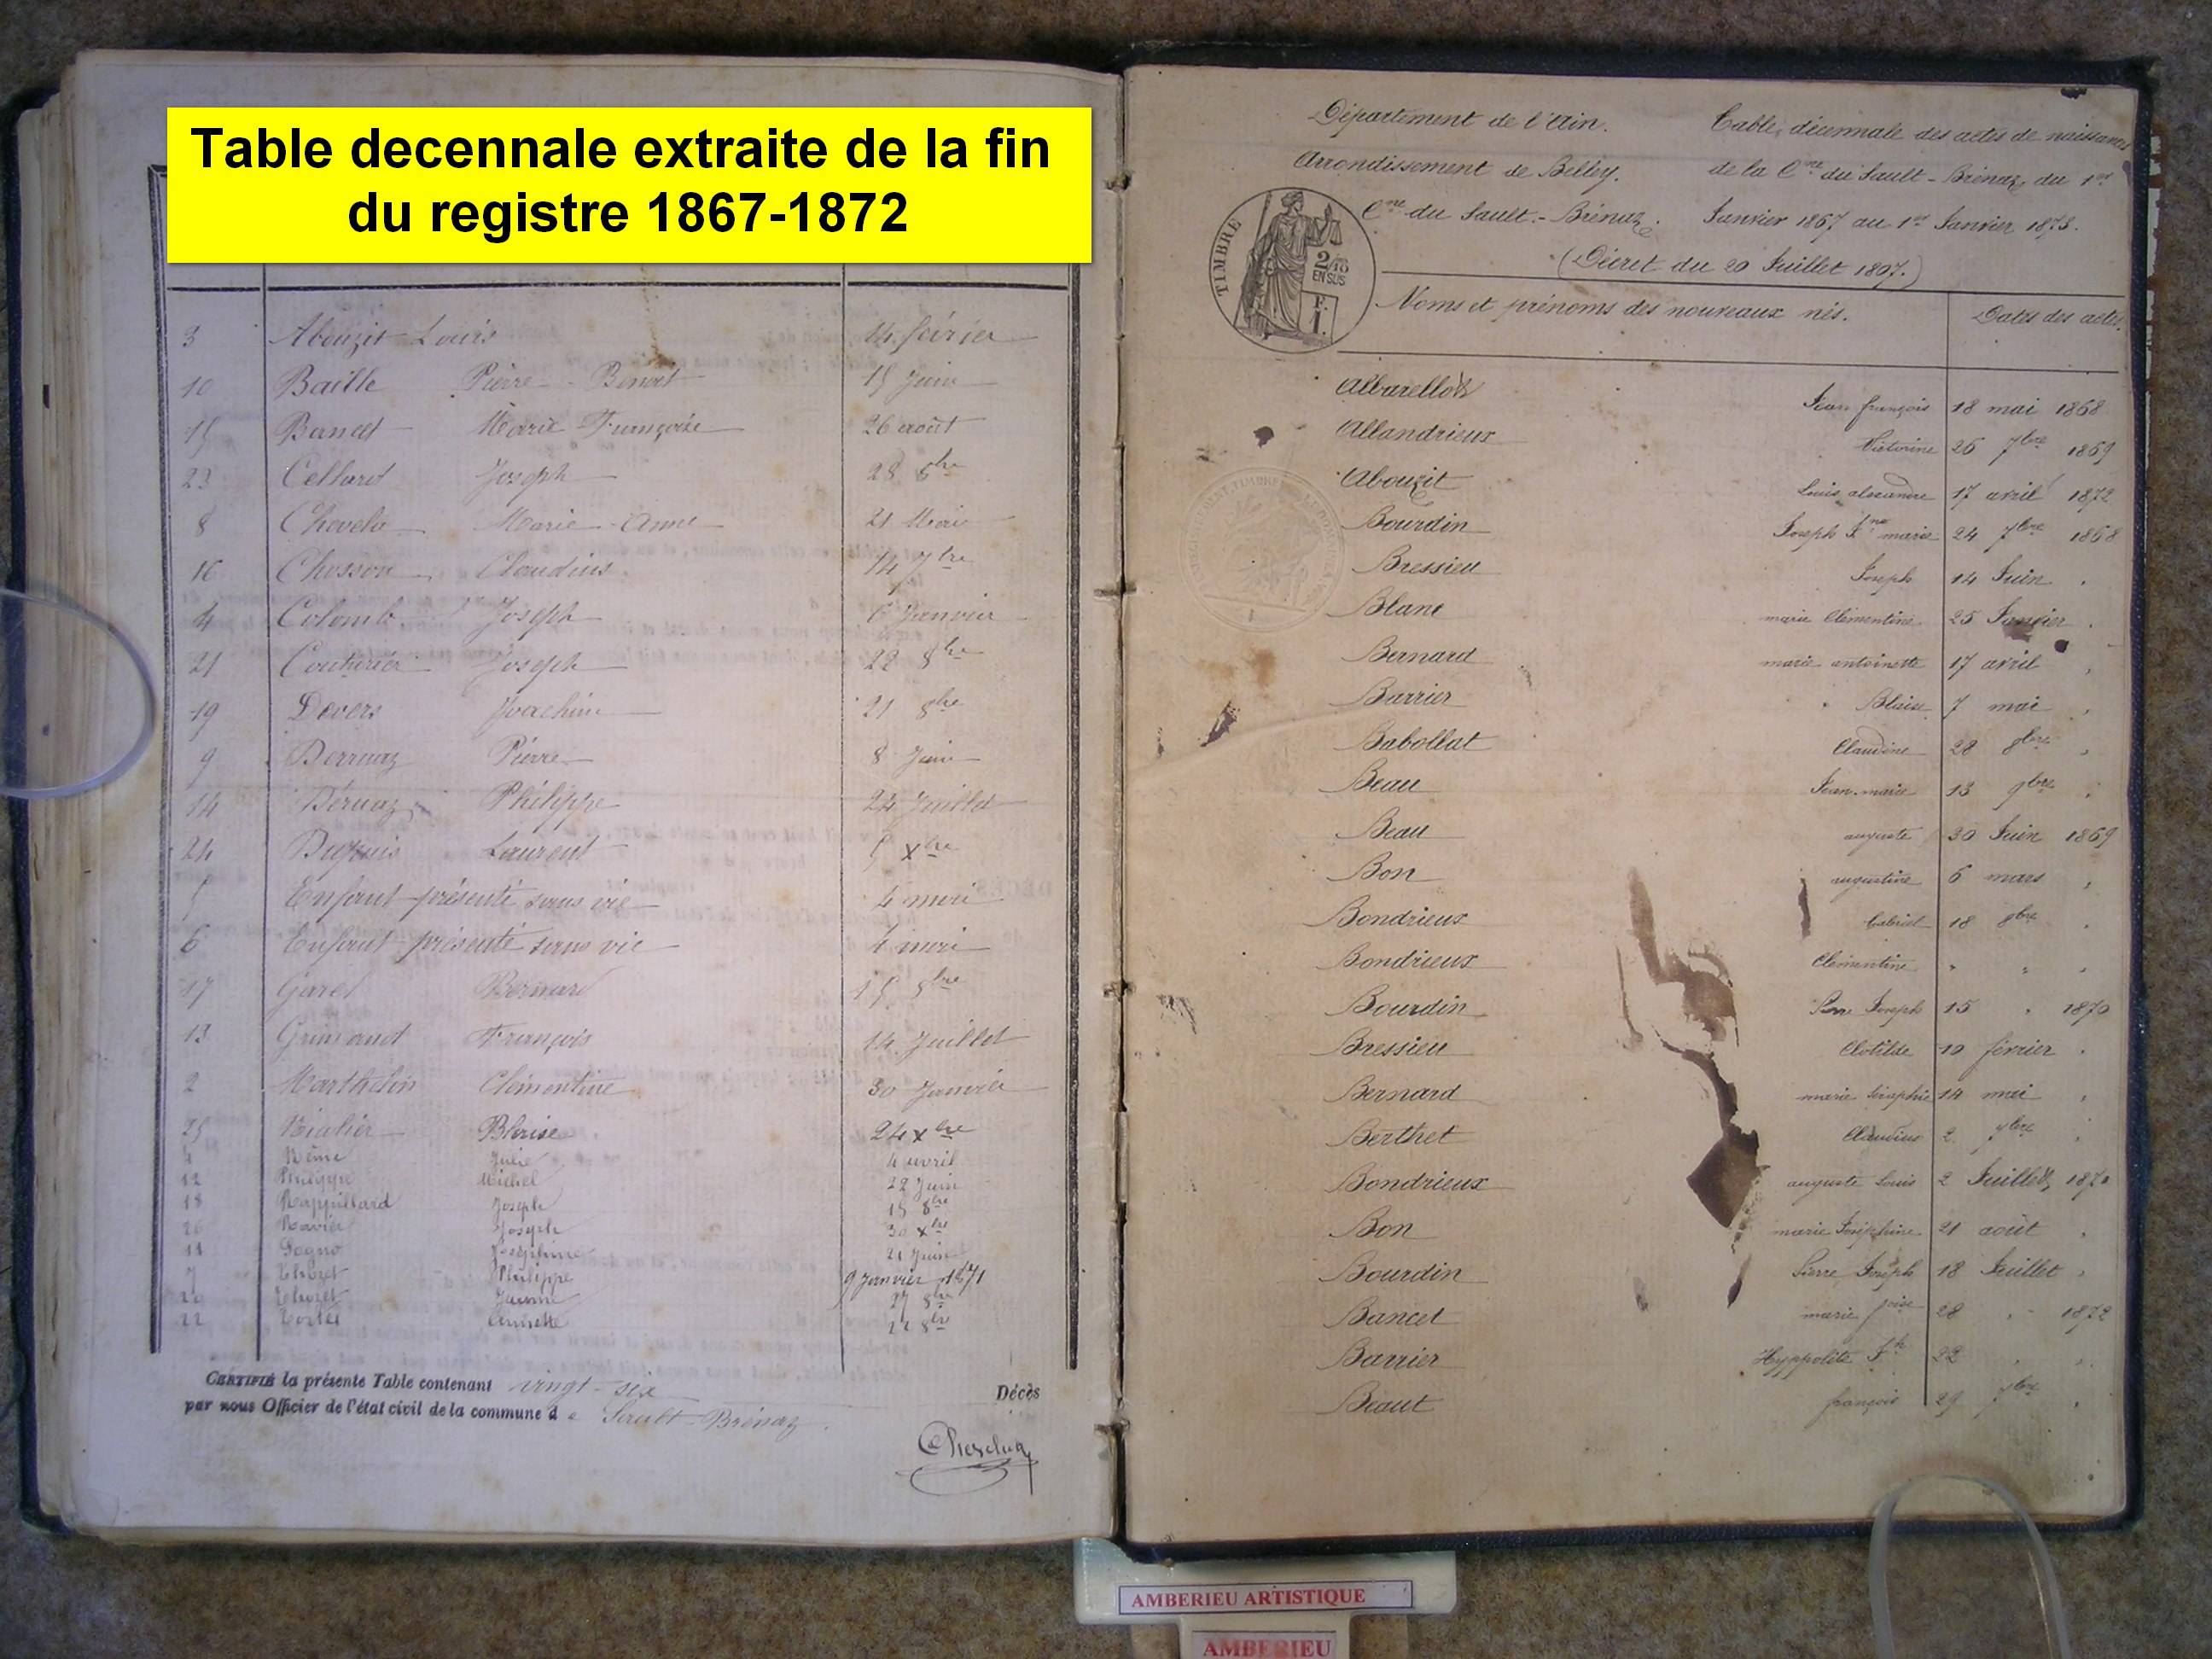 Table decennale extraite de la fin
du registre 1867-1872
3 Abouzit Louis 14 février
10 Baille Pierre-Benoit 15 Juin
15 Bancet Marie Françoise 26 août
23 Cellard Joseph 28 8bre
8 Marie-Anne 21 Mai
16 Chosson Claudius 14 7bre
4 Colomb Joseph 6 Janvier
21 Couturier Joseph 28 8bre
19 Devers Joachim 21 8bre
9 Dernaz Pierre 8 Juin
14 Dérnaz Philippe 24 Juillet
24 Dupuis Laurent 5 Xbre
5 Enfant présenté sans vie 4 mai
6 Enfant présenté sans vie 4 mai
17 Garel Bernard 15 8bre
13 Grimand François 14 Juillet
2 Marthelin Clémentine 30 Janvier
25 Blaise 24 xbre
Julie 4 avril
12 Philippe Michel 22 Juin
18 Rappillard Joseph 15 8bre
26 Ravier Joseph 30 xbre
11 Joséphine 21 Juin
7 Thozet Philippe 9 Janvier 1871
20 Thozet 27 8bre
22 8bre
CERTIFIÉ la présente Table contenant vingt-six Décès
par nous Officier de l'état civil de la commune d e Sault-Brénaz
Département de l'Ain. Table décennale des actes de naissances
Arrondissement de Belley. de la Cne du Sault-Brénaz, du 1er
Cne du Sault-Brénaz. Janvier 1867 au 1er Janvier 1873.
(Décret du 20 Juillet 1807.)
TIMBRE
2/10
EN SUS
F.
1.
Noms et prénoms des nouveaux nés. Dates des actes.
Albarello Jean françois 18 mai 1868
Allandrieux Victorine 26 7bre 1869
Abouzit Louis alexandre 17 avril 1872
Bourdin Joseph Fne marie 24 7bre 1868
Bressieu Joseph 14 Juin "
Blanc marie Clémentine 25 Janvier "
Bernard marie antoinette 17 avril "
Barrier Blaise 7 mai "
Babollat Claudine 28 8bre "
Beau Jean-marie 13 9bre "
Beau auguste 30 Juin 1869
Bon augustine 6 mars "
Bondrieux Gabriel 18 8bre "
Bondrieux Clémentine " " "
Bourdin Joseph 15 " 1870
Bressieu Clotilde 10 février "
Bernard marie séraphie 14 mai "
Berthet Claudius 2 7bre "
Bondrieux auguste Louis 2 Juillet
Bon marie Joséphine 21 août "
Bourdin Pierre Joseph 18 Juillet "
Bancet marie foise 28 " 1872
Barrier Hyppolite Jh 22 " "
Béaut françois 29 7bre "
AMBERIEU ARTISTIQUE
AMBERIEU